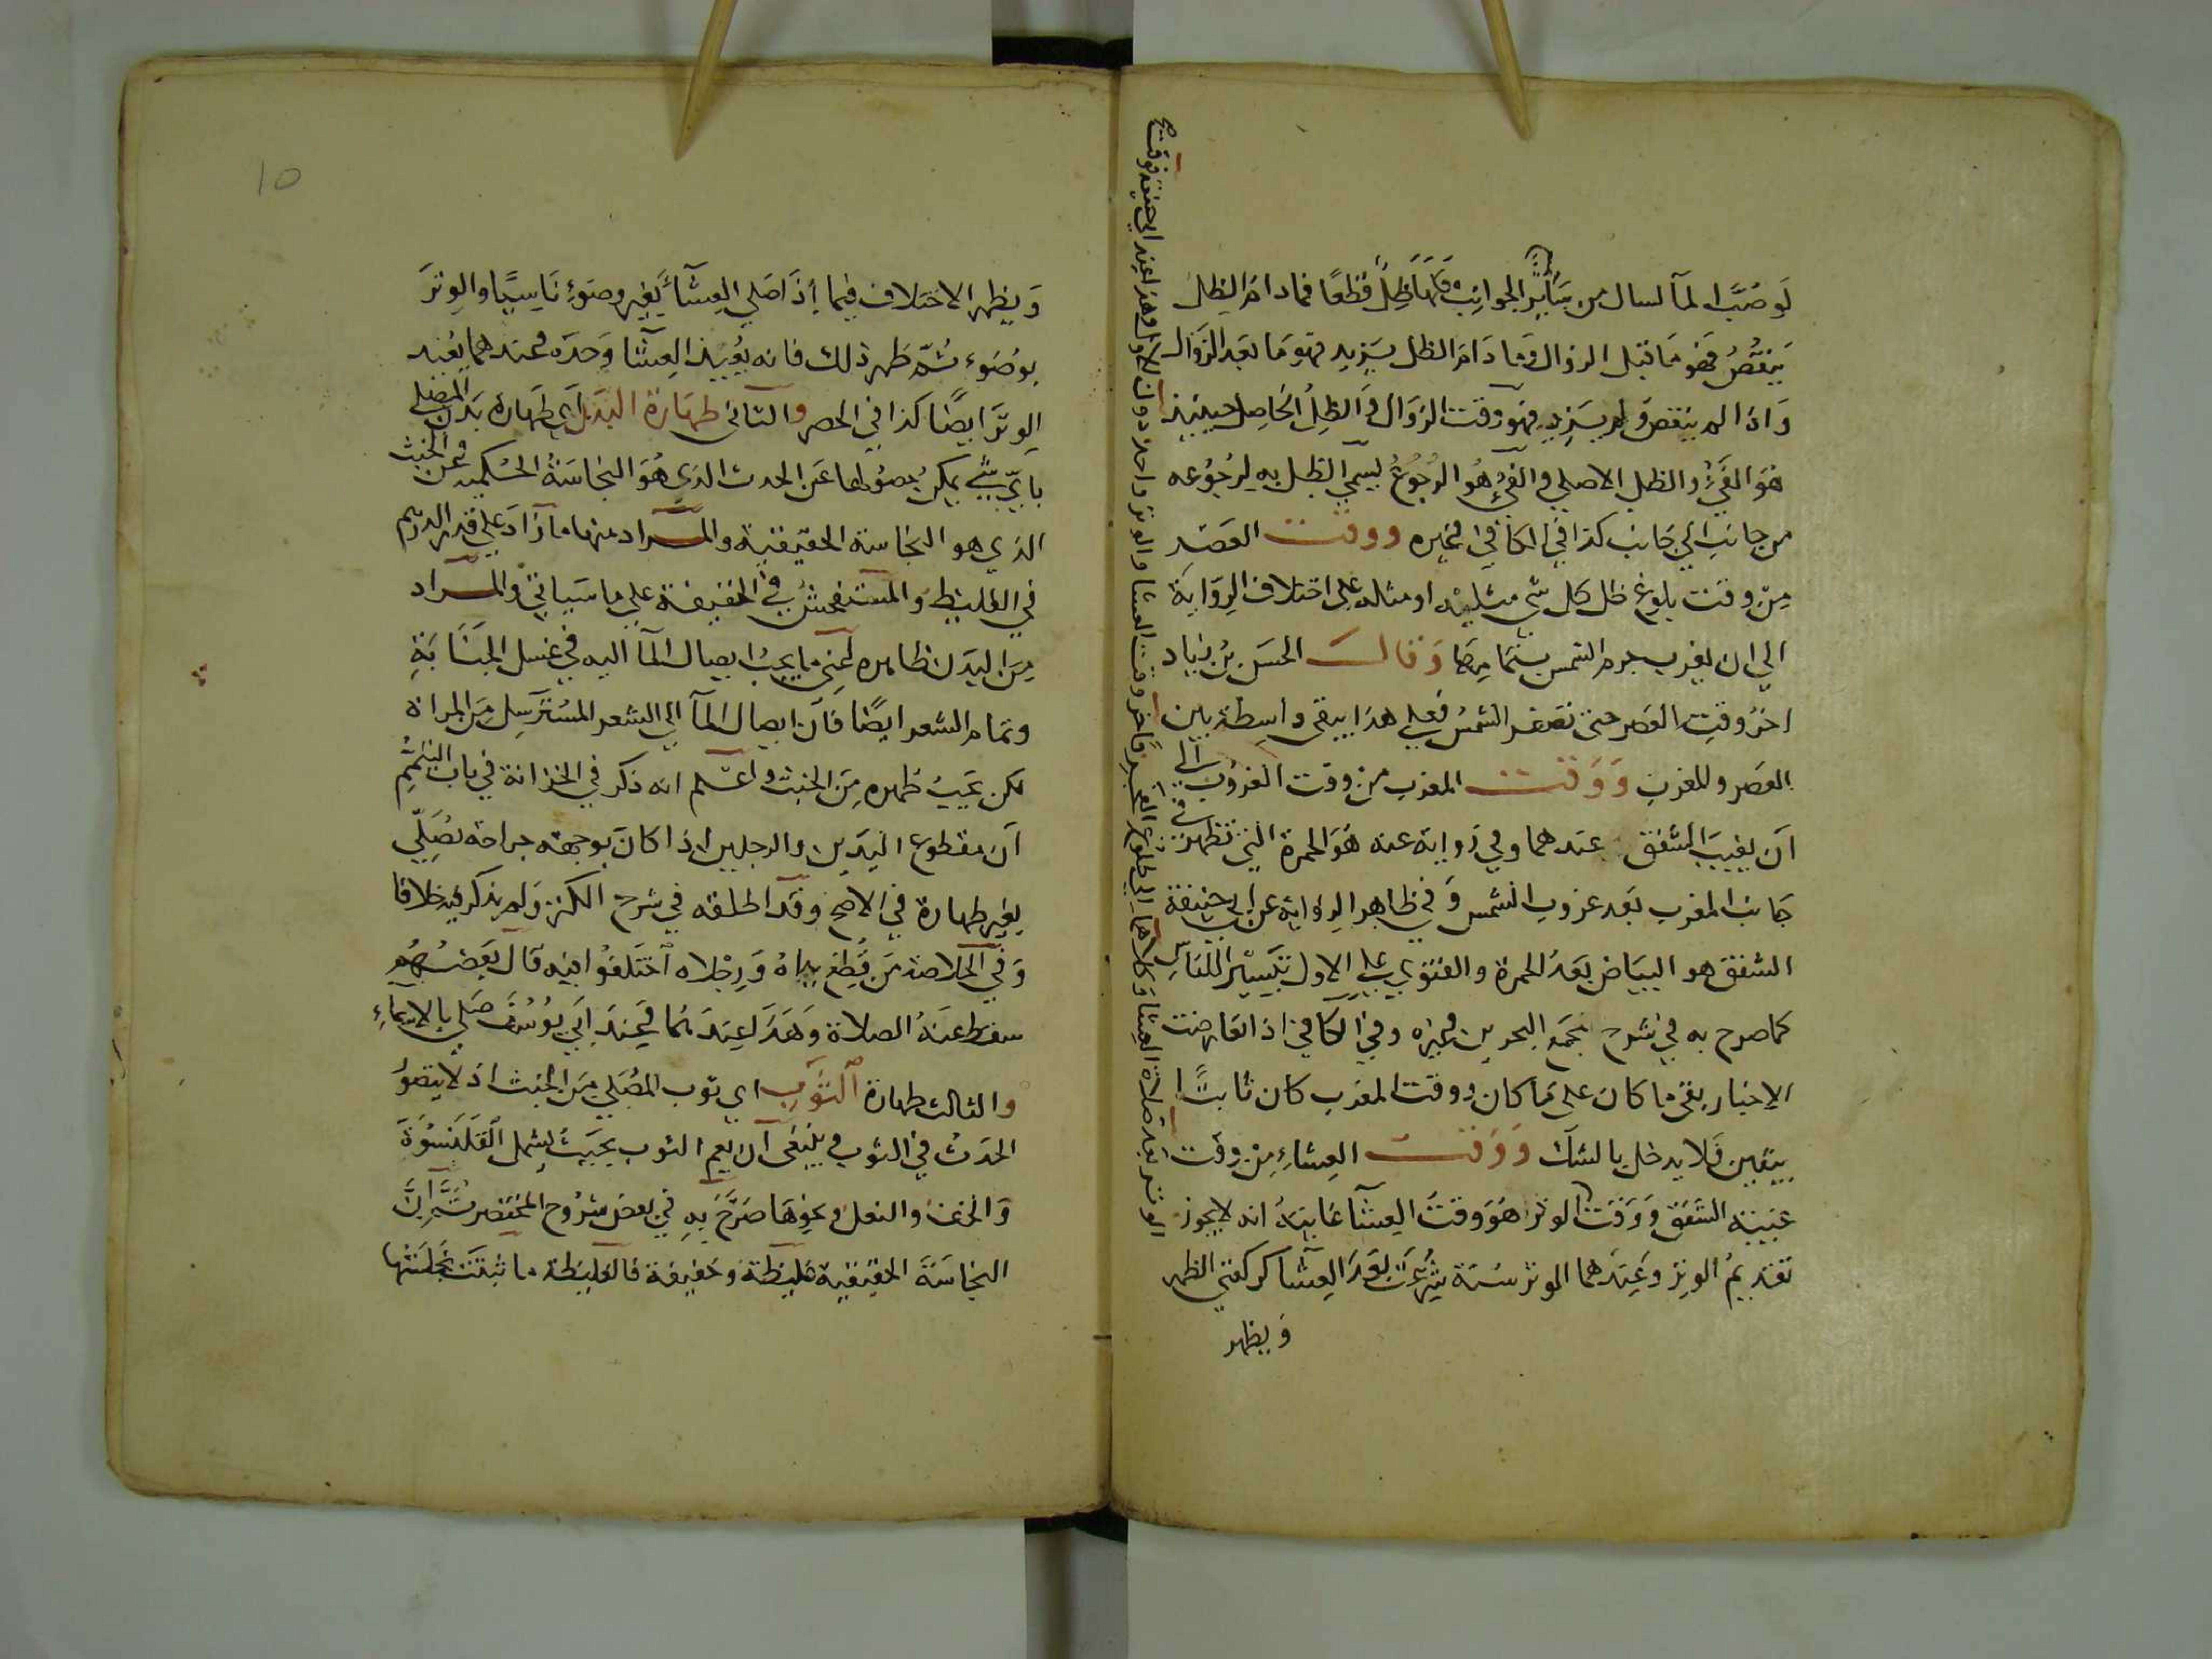 لو صب الماء لسال من سائر الجوانب فلها ظل قطعا فما دام الظل
ينقص فهو ما قبل الزوال وما دام الظل يزيد فهو ما بعد الزوال
واذا لم ينقص ولم يزيد فهو وقت الزوال والظل الحاصل حينئذ
هو الفئ والظل الاصلي والفئ هو الرجوع ليسمي الظل به لرجوعه
من جانب الي جانب كذا في الكافي وغيره ووقت العصر
من وقت بلوغ ظل كل شي مثليه او مثله علي اختلاف الرواية
الي ان يغرب جرم الشمس بتمامها وقال الحسن بن زياد
اخر وقت العصر حتي تصفر الشمس فعلي هذا يبقي واسطة بين
العصر وللمغرب ووقت المغرب من وقت الغروب الي
ان يغيب الشفق عندهما وفي رواية عنه هو الحمرة التي تظهر في
جانب المغرب بعد غروب الشمس وفي ظاهر الرواية عن ابي حنيفة
الشفق هو البياض بعد الحمرة والفتوي علي الاول تيسيرا للناس
كما صرح به في شرح مجمع البحرين وغيره وفي الكافي اذا تعارضت
الاخبار بقي ما كان علي ما كان ووقت المغرب كان ثابتا
بيقين فلا يدخل بالشك ووقت العشاء من وقت
غيبة الشفق ووقت الوتر هو وقت العشآ غايته انه لا يجوز
تقديم الوتر وعندهما الوتر سنة شرعت بعد العشآ كركعتي الظهر
ويظهر
الوتر بعد صلاة العشا وكلاهما الي طلوع الفجر فاخر وقت العشا والوتر واحد دون الاول وهذا عند ابي حنيفة فوقته
10
ويظهر الاختلاف فيما إذا صلي العشآء بغير وضوء ناسيا والوتر
بوضوء ثم ظهر ذلك فانه يعيد العشآ وحده وعندهما يعيد
الوتر ايضا كذا في الحصر والثاني طهارة البدن اي طهارة بدن المصلي
باي شئ يمكن حصولها عن الحدث الذي هو النجاسة الحكمية وعن الخبث
الذي هو النجاسة الحقيقية والمراد منها ما زاد علي قدر الدرهم
في الغليظ والمستفحش في الخفيفة علي ما سياتي والمراد
من البدن ظاهره اعني ما يجب ايصال المآ اليه في غسل الجنابة
وتمام الشعر ايضا فان ايصال المآ الي الشعر المسترسل من المراة
لكن يجب طهره من الخبث واعلم انه ذكر في الخزانة في باب التيمم
ان مقطوع اليدين والرجلين اذا كان بوجهه جراحة يصلي
بغير طهارة في الاصح وقد اطلقه في شرح الكنز ولم يذكر فيه خلافا
وفي الخلاصة من قطع يداه ورجلاه اختلفوا فيه قال بعضهم
سقط عنه الصلاة وهذا عندهما وعند ابي يوسف صلي بالايماء
والثالث طهارة الثوب اي ثوب المصلي من الخبث اذ لا يتصور
الحدث في الثوب وينبغي ان يعم الثوب بحيث يشمل القلنسوة
والخف والنعل ونحوها صرح به في بعض شروح المختصر ثم ان
النجاسة الحقيقية غليظة وخفيفة فالغليظة ما ثبتت نجاستها